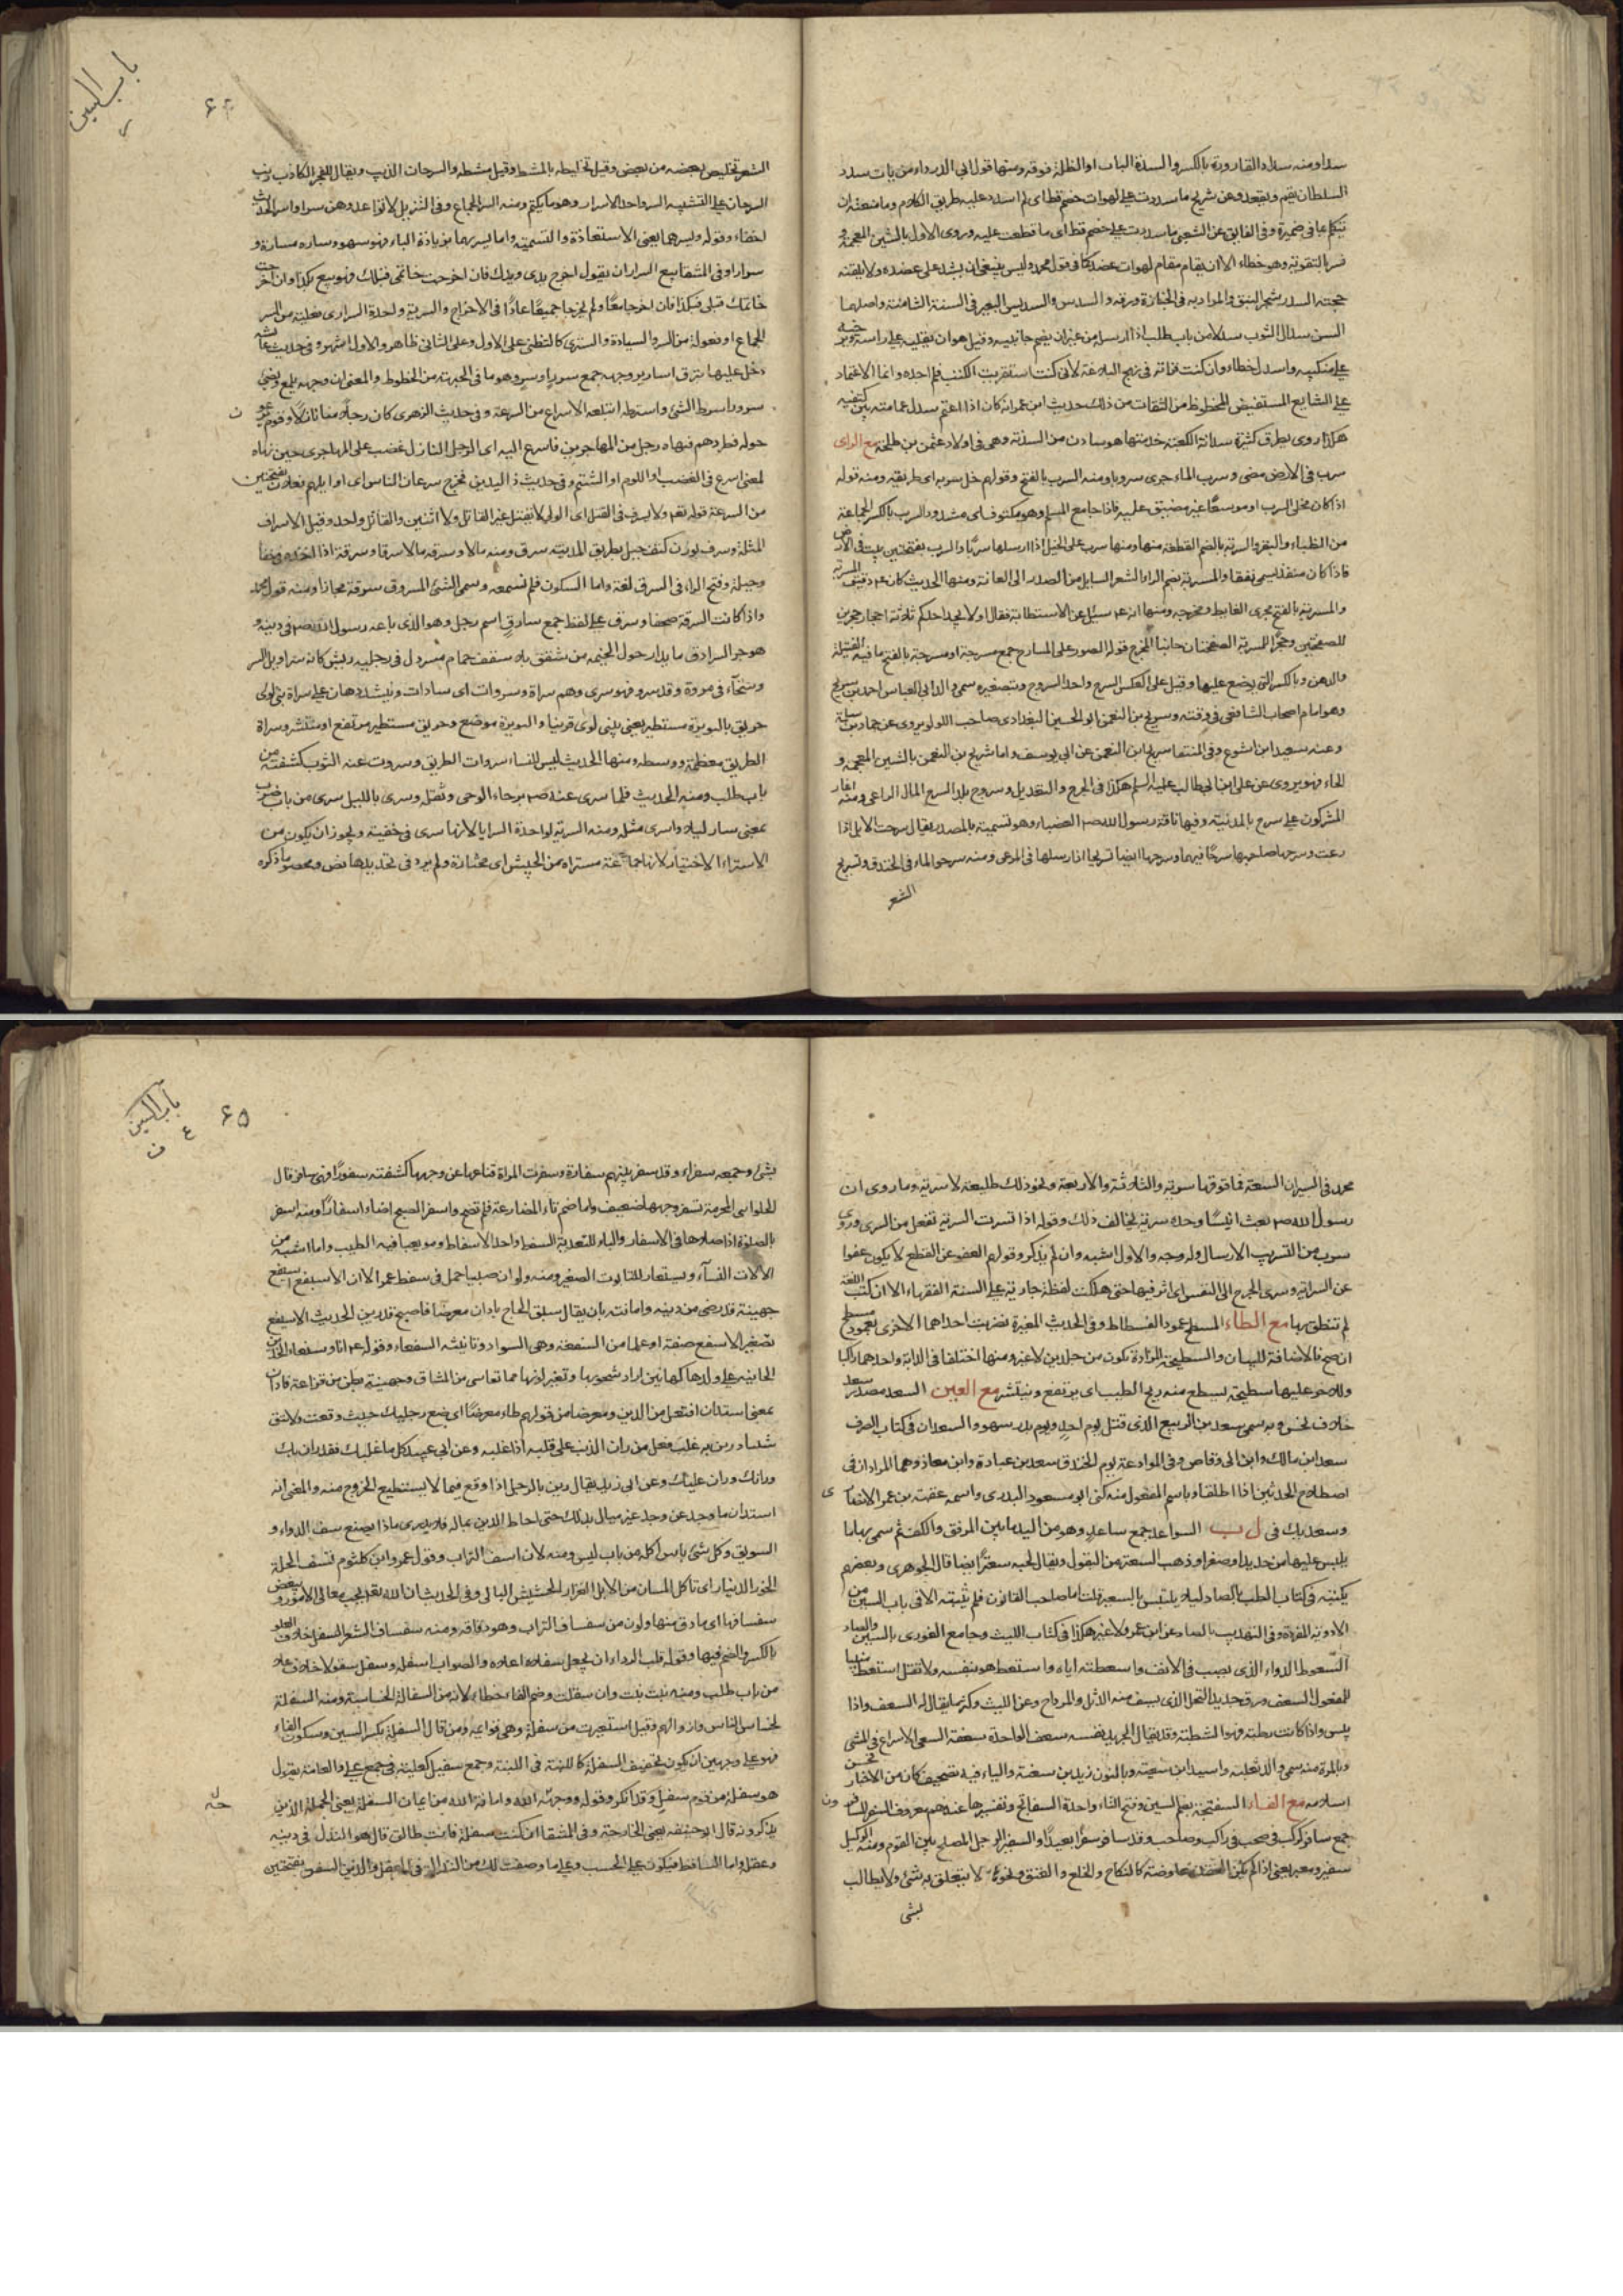 سدا ومنه سداد القارورة بالكسر والسدة الباب او الظلة فوقه ومنها قول ابي الدرداء من يات سدد
السلطان يقم ويقعد وعن شريح ما سددت على لهوات خصم قط اى لم اسدد عليه طريق الكلام وما منعته ان
يتكلم بما فى ضميره وفى الفايق عن الشعبى ما سددت على خصم قط اى ما قطعت عليه وروى الاول بالشين المعجمة و
فسر بالتقوية وهو خطاء الا ان يقام مقام لهوات عضد كما فى قول محمد وليس ينبغى ان يشد على عضده ولا يلقنه
حجته السدر شجر النبق والمراد به فى الجنازة ورقه والسدس والسديس البعير فى السنة الثامنة واصلهما
السن سدل الثوب سدلا من باب طلب اذا ارسله من غير ان يضم جانبيه وقيل هو ان يلقيه على راسه ويرخيه
على منكبيه واسدل خطاء وان كنت قراته فى نهج البلاغة لانى كنت استقريت الكتب فلم اجده وانما الاعتماد
على الشايع المستفيض المحفوظ من الثقات من ذلك حديث ابن عمر انه كان اذا اعتم سدل عمامته بين كتفيه
هكذا روى بطرق كثيرة سدانة الكعبة خدمتها هو سادن من السدنة وهى فى اولاد عثمن بن طلحة مع الراى
سرب فى الارض مضى وسرب الماء جرى سروبا ومنه السرب بالفتح وقولهم خل سربه اى طريقه ومنه قوله
اذا كان مخلى السرب اى موسعا غير مضيق عليه
من الظباء والبقر والسربة بالضم القطعة منها ومنها سرب على الخيل اذا ارسلها سربا والسرب بفتحتين بيت فى الارض
فاذا كان له منفذ يسمى نفقا والمسربة بضم الراء الشعر السايل من الصدر الى العانة ومنها الحديث كان ع م دقيق المسربة
والمسربة بالفتح مجرى الغايط ومخرجه ومنها انه ع م سئل عن الاستطابة فقال اولا يجد احدكم ثلاثة احجار حجرين
للصفحتين وحجرا للمسربة الصفحتان جانبا المخرج قوله الصور على المسارج جمع مسرجة او مسرجة بالفتح ما فيه الفتيلة
والدهن وبالكسر التى يوضع عليها وقيل على العكس السرج واحد السروج وبتصغيره سمى والد ابى العباس احمد بن سريج
وهو امام اصحاب الشافعى فى وقته وسريج بن النعمن ابو الحسين البغدادى صاحب اللولو يروى عن حماد بن سلمة
وعنه سعيد ابن اشوع وفى المنتقا سريج ابن النعمن عن ابى يوسف واما شريح بن النعمن بالشين المعجمة و
الحاء فهو يروى عن على ابن ابيطالب عليه السلم هكذا فى الجرح والتعديل وسروج بلد السرح المال الراعى ومنه اغار
المشركون على سرح بالمدينة وفيها ناقة رسول الله ص م العضباء وهو تسمية بالمصدر يقال سرحت الابل اذا
رعت وسرحها صاحبها سرحا فيهما وسرحها ايضا تسريحا اذا ارسلها فى المرعى ومنه سرحوا الماء فى الخندق وتسريح
الشعر
باب السين
ر
۶۴
الشعر تخليص بعضه من بعض وقيل تخليطه بالمشط وقيل مشطه والسرحان الذيب ويقال للفجر الكاذب ذنب
السرحان على التشبيه السر واحد الاسرار وهو ما يكتم ومنه السر الجماع وفى التنزيل لا تواعدوهن سرا واسر الحديث
اخفاه وقوله ويسرهما يعنى الاستعاذة والتسمية واما ليسر بهما بزيادة الباء فهو سهو وساره مسارة و
سرارا وفى المشقا بيع السرار ان يقول اخرج يدى ويدك فان اخرجت خاتمى قبلك فهو بيع بكذا وان اخرجت
خاتمك قبلى فبكذا فان اخرجا معا ولم يخرجا جميعا عادا فى الاخراج والسرية واحدة السرارى فعلية من السر
الجماع او فعولة من السرو السيادة والتسرى كالتظنى على الاول وعلى الثانى ظاهر والاول اشهر وفى حديث عائشة
دخل عليها تبرق اسارير وجهه جمع سرر وهو ما فى الجبهة من الخطوط والمعنى ان وجهه يلمع ويضىء
سرورا سرط الشىء واسترطه ابتلعه الاسراع من السرعة وفى حديث الزهرى كان رجلا
حوله فطردهم فنهاه رجل من المهاجرين فاسرع اليه اى الرجل النازل غضب على المهاجرى حين نهاه
لمعنى اسرع فى الغضب او اللوم او الشتم وفى حديث ذى اليدين فخرج سرعان الناس اى اوايلهم فعلان بفتحتين
من السرعة قوله تعم ولا يسرف فى القتل اى الولى لا يقتل غير القاتل ولا اثنين والقاتل واحد وقيل الاسراف
المثلة وسرف بوزن كتف جبل بطريق المدينة سرق ومنه مالا وسرقه مالا سرقا وسرقة اذا اخذه فى خفاء
وحيلة وفتح الراء فى السرق لغة واما السكون فلم نسمعه وسمى الشئ المسروق سرقة مجازا ومنه قول محمد
واذا كانت السرقة صحفا وسرق على لفظ جمع سارق اسم رجل وهو الذى باعه رسول الله ص م فى دينه و
هو حر السرادق ما يدار حول الخيمة من شقق بلا سقف حمام مسرول فى رجليه ريش كانه سراويل السرو
وسخاء فى مروة وقد سرو فهو سرى وهم سراة وسروات اى سادات وينشد وهان على سراة بنى لوى
حريق بالبويرة مستطير يعنى ببنى لوى قريشا والبويرة موضع وحريق مستطير مرتفع او منتشر وسراة
الطريق معظمه ووسطه ومنها الحديث ليس للنساء سروات الطريق وسروت عنه الثوب كشفته من
باب طلب ومنه الحديث فلما سرى عنه ص م برحاء الوحى وثقله وسرى بالليل سرى من باب ضرب
بمعنى سار ليلا واسرى مثله ومنه السرية لواحدة السرايا لانها تسرى فى خفية ويجوز ان يكون من
الاستراء الاختيار لانها جماعة مستراة من الجيش اى مختارة ولم يرد فى تحديدها نص ومحصول ما ذكره
محمد فى السير ان التسعة فما فوقها سرية والثلاثة والاربعة ونحو ذلك طليعة لا سرية وما روى ان
رسول الله ص م بعث انيسا وحده سرية يخالف ذلك وقوله اذا تسرت السرية تفعل من السرى وروى
سربت من التسريب الارسال وله وجه والاول اشبه وان لم يذكر وقولهم العفو عن القطع لا يكون عفوا
عن السراية وسرى الجرح الى النفس اى اثر فيها حتى هلكت لفظة جارية على السنة الفقهاء الا ان كتب اللغة
لم تنطق بها مع الطاء المسطح عمود الفسطاط وفى الحديث المغيرة فضربت احداهما الاخرى بعمود مسطح
ان صح فالاضافة للبيان والسطيحة المزادة تكون من جلدين لا غير ومنها اختلفا فى الدابة واحدهما راكبا
وللاخر عليها سطيحة يسطع منه ريح الطيب اى يرتفع وينتشر مع العين السعد مصدر سعد
خلاف نحس وبه سمى سعد بن الربيع الذى قتل يوم احد ويوم بدر سهو والسعدان فى كتاب الصرف
سعد ابن مالك وابن ابى وقاص وفى الموادعة يوم الخندق سعد بن عبادة وابن معاذ وهما المرادان فى
اصطلاح المحدثين اذا اطلقا وباسم المفعول منه كنى ابو مسعود البدرى واسمه عقبة بن عمرو الانصارى
وسعديك فى ل ب السواعد جمع ساعد وهو من اليد ما بين المرفق والكف ثم سمى بها ما
يلبس عليها من حديد او صفر او ذهب السعتر من البقول ويقال لحبه سعتر ايضا قال الجوهرى وبعضهم
يكتبه فى كتاب الطب بالصاد ليلا يلتبس بالسعير قلت اما صاحب القانون فلم يثبته الا فى باب السين من
الادوية المفردة وفى التهذيب بالصاد عن ابن عمرو لا غير هكذا فى كتاب الليث وجامع الغورى بالسين والصاد
السعوط الدواء الذى يصب فى الانف واسعطته اياه واستعط هو بنفسه ولا تقل استعط مبنيا
للمفعول السعف ورق جريد النخل الذى يسف منه الزبل والمراوح وعن الليث وكثر ما يقال له السعف واذا
يبس واذا كانت رطبة فهو الشطبة وقد يقال للجريد نفسه سعف الواحدة سعفة السعى الاسراع فى المشى
وبالمرة منه سمى والد ثعلبة واسيد ابن سعية وبالنون زيد بن سعنة والياء فيه تصحيف كان من الاحبار
اسلامه مع الفاء السفتجة بضم السين وفتح التاء واحدة السفاتج وتفسيرها عندهم معروف السفر المسافرون
جمع سافر كركب فى صحب فى راكب وصاحب وقد سافر سفرا بعيدا والسفير الرجل المصلح بين القوم ومنه الوكيل
سفير ومعبر يعنى اذا لم يكن العقد معاوضة كالنكاح والخلع والعتق ونحوها لا يتعلق به شئ ولا يطالب
بشى
باب السين
ع
ف
۶۵
بشئ وجمعه سفراء وقد سفر بينهم سفارة وسفرت المراة قناعها عن وجهها كشفته سفورا فهى سافر قال
بالصلوة اذا صلاها فى الاسفار والباء للتعدية السفط واحد الاسفاط وهو ما يعبا فيه الطيب وما اشبهه من
الالات النساء ويستعار للتابوت الصغير ومنه ولو ان صبيا حمل فى سفط عمر الا ان الاسيفع اسيفع
جهينة قد رضى من دينه وامانته بان يقال سبق الحاج فادان معرضا فاصبح قد رين به الحديث الاسيفع
تصغير الاسفع صفة او علما من السفعة وهى السواد وتانيثه السفعاء وقوله ع م انا وسفعاء الخدين
الحانية على ولدها كهاتين اراد شحوبها وتغير لونها مما تقاسى من المشاق وجهينة بطن من قضاعة فادان
بمعنى استدان افتعل من الدين ومعرضا من قولهم طاء معرضا اى ضع رجليك حيث وقعت ولا تتق
شيئا ورين به غلب فعل من ران الذنب على قلبه اذا غلبه وعن ابى عبيد كل ما غلبك فقد ران بك
ورانك وران عليك وعن ابى زيد يقال رين بالرجل اذا وقع فيما لا يستطيع الخروج منه والمعنى انه
استدان ما وجد عن وجد غير مبال بذلك حتى احاط الدين بماله فلا يدرى ماذا يصنع سف الدواء و
السويق وكل شئ يابس اكله من باب لبس ومنه لان اسف التراب وقول عمرو ابن كلثوم تسف الجلة
الخور الدرينا اى تاكل المسان من الابل الغزار الحشيش البالى وفى الحديث ان الله تعم يحب معالى الامور ويبغض
سفسافها اى ما دق منها ولؤم من سفساف التراب وهو دقاقه ومنه سفساف الشعر السفل خلاف العلو
بالكسر والضم فيهما وقوله قلب الرداء ان يجعل سفلاه اعلاه والصواب اسفله وسفل سفولا خلاف علا
من باب طلب ومنه بنت بنت وان سفلت وضم الفاء خطاء لانه من السفالة الخساسة ومنه السفلة
لخساس الناس وارذالهم وقيل استعيرت من سفلة وهى قوائمه ومن قال السفلة بكسر السين وسكون الفاء
فهو على وجهين ان يكون تخفيف السفلة كاللبنة فى اللبنة وجمع سفيل كعلية فى جمع على والعامة يقول
هو سفلة من قوم سفل وقد انكر وقوله ووجه الله وامانة الله من ايمان السفلة يعنى الجهلة الذين
يذكرونه قال ابو حنيفه يعنى الخارجة وفى المنتقا ان كنت سفلة فانت طالق قال هو النذل فى دينه
وعقله واما الساقط فيكون على الحسب وعلى ما وصفت لك من النذالة فى العقل والدين السفن بفتحتين